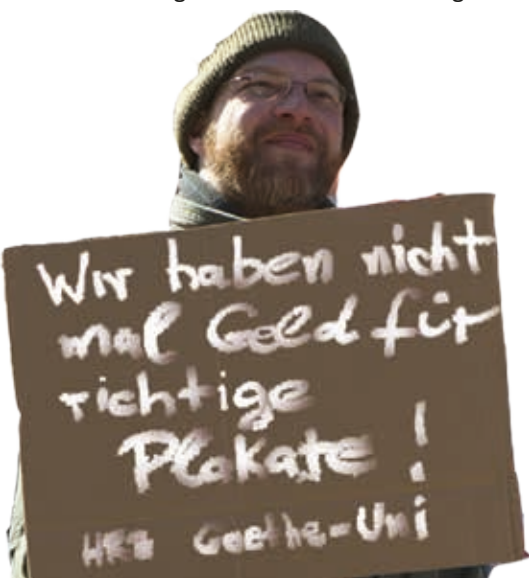 Wir haben nicht
mal Geld für
richtige
Plakate!
HRZ Goethe-Uni